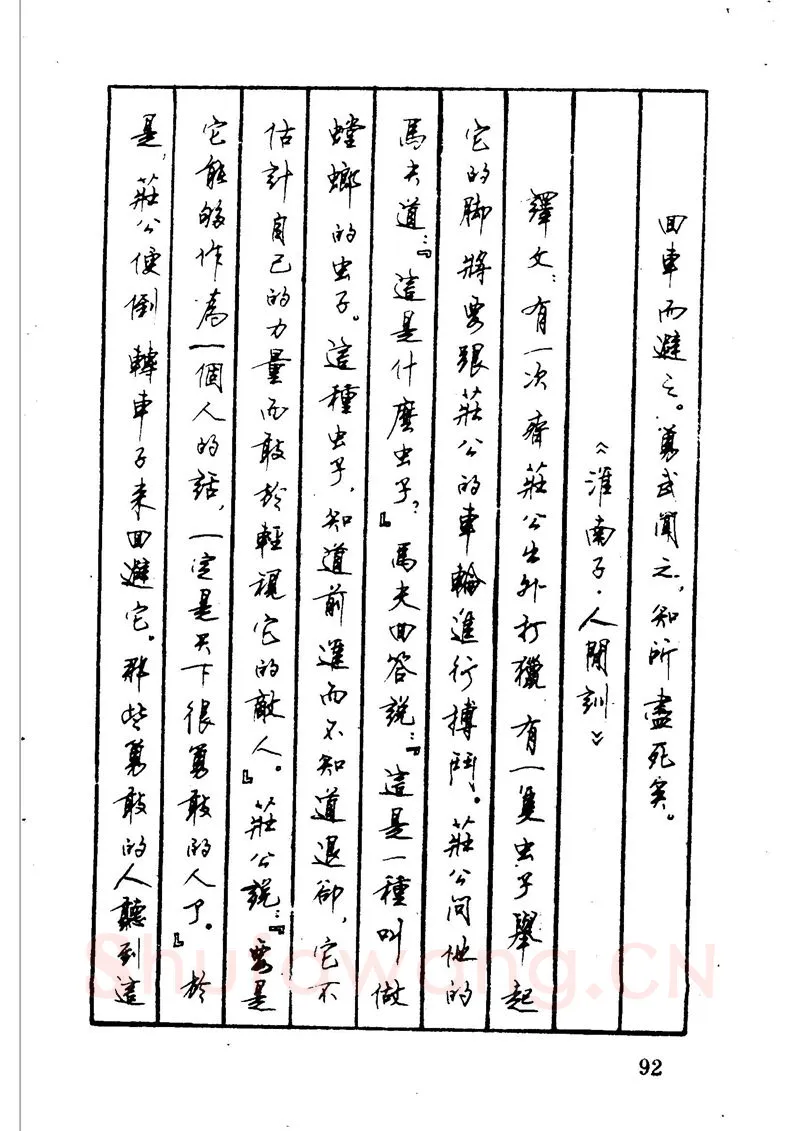 回車而避之。勇武聞之，知所盡死矣。
《淮南子·人間訓》
譯文：有一次齊莊公出外打獵有一隻虫子舉起
它的脚將要跟莊公的車輪進行搏鬥。莊公問他的
馬夫道：『這是什麼虫子？』馬夫回答說：『這是一種叫做
螳螂的虫子。這種虫子，知道前進而不知道退卻，它不
估計自己的力量而敢於輕視它的敵人。』莊公說：『要是
它能够作為一個人的話，一定是天下很勇敢的人了。』於
是，莊公便倒轉車子来回避它。那些勇敢的人聽到這
92
Shufawang.CN